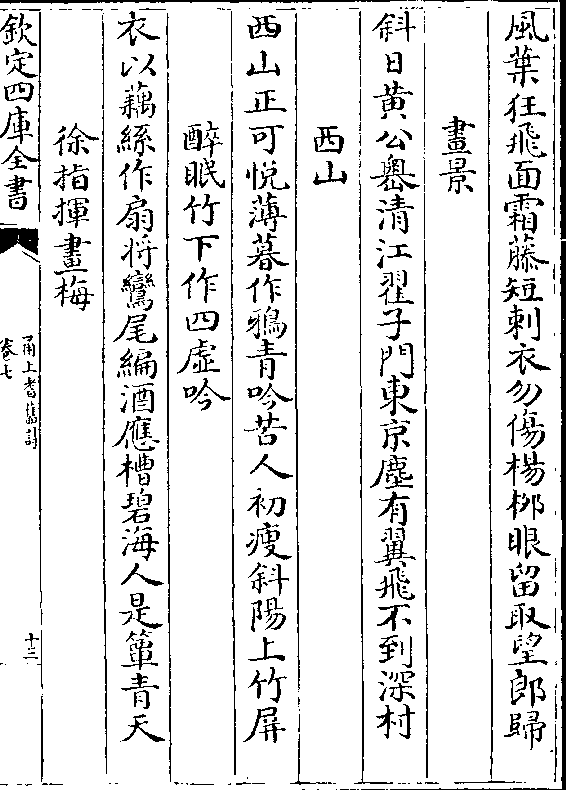 風葉狂飛面霜藤短刺衣勿傷楊柳眼留取望郎歸
畫景
斜日黄公嶴清江翟子門東京塵有翼飛不到深村
西山
西山正可悦薄暮作鴉青吟苦人初瘦斜陽上竹屏
醉眠竹下作四虛吟
衣以藕絲作扇将鸞尾編酒應槽碧海人是簞青天
徐指揮畫梅
欽定四庫全書
甬上耆舊詩
卷七
十三